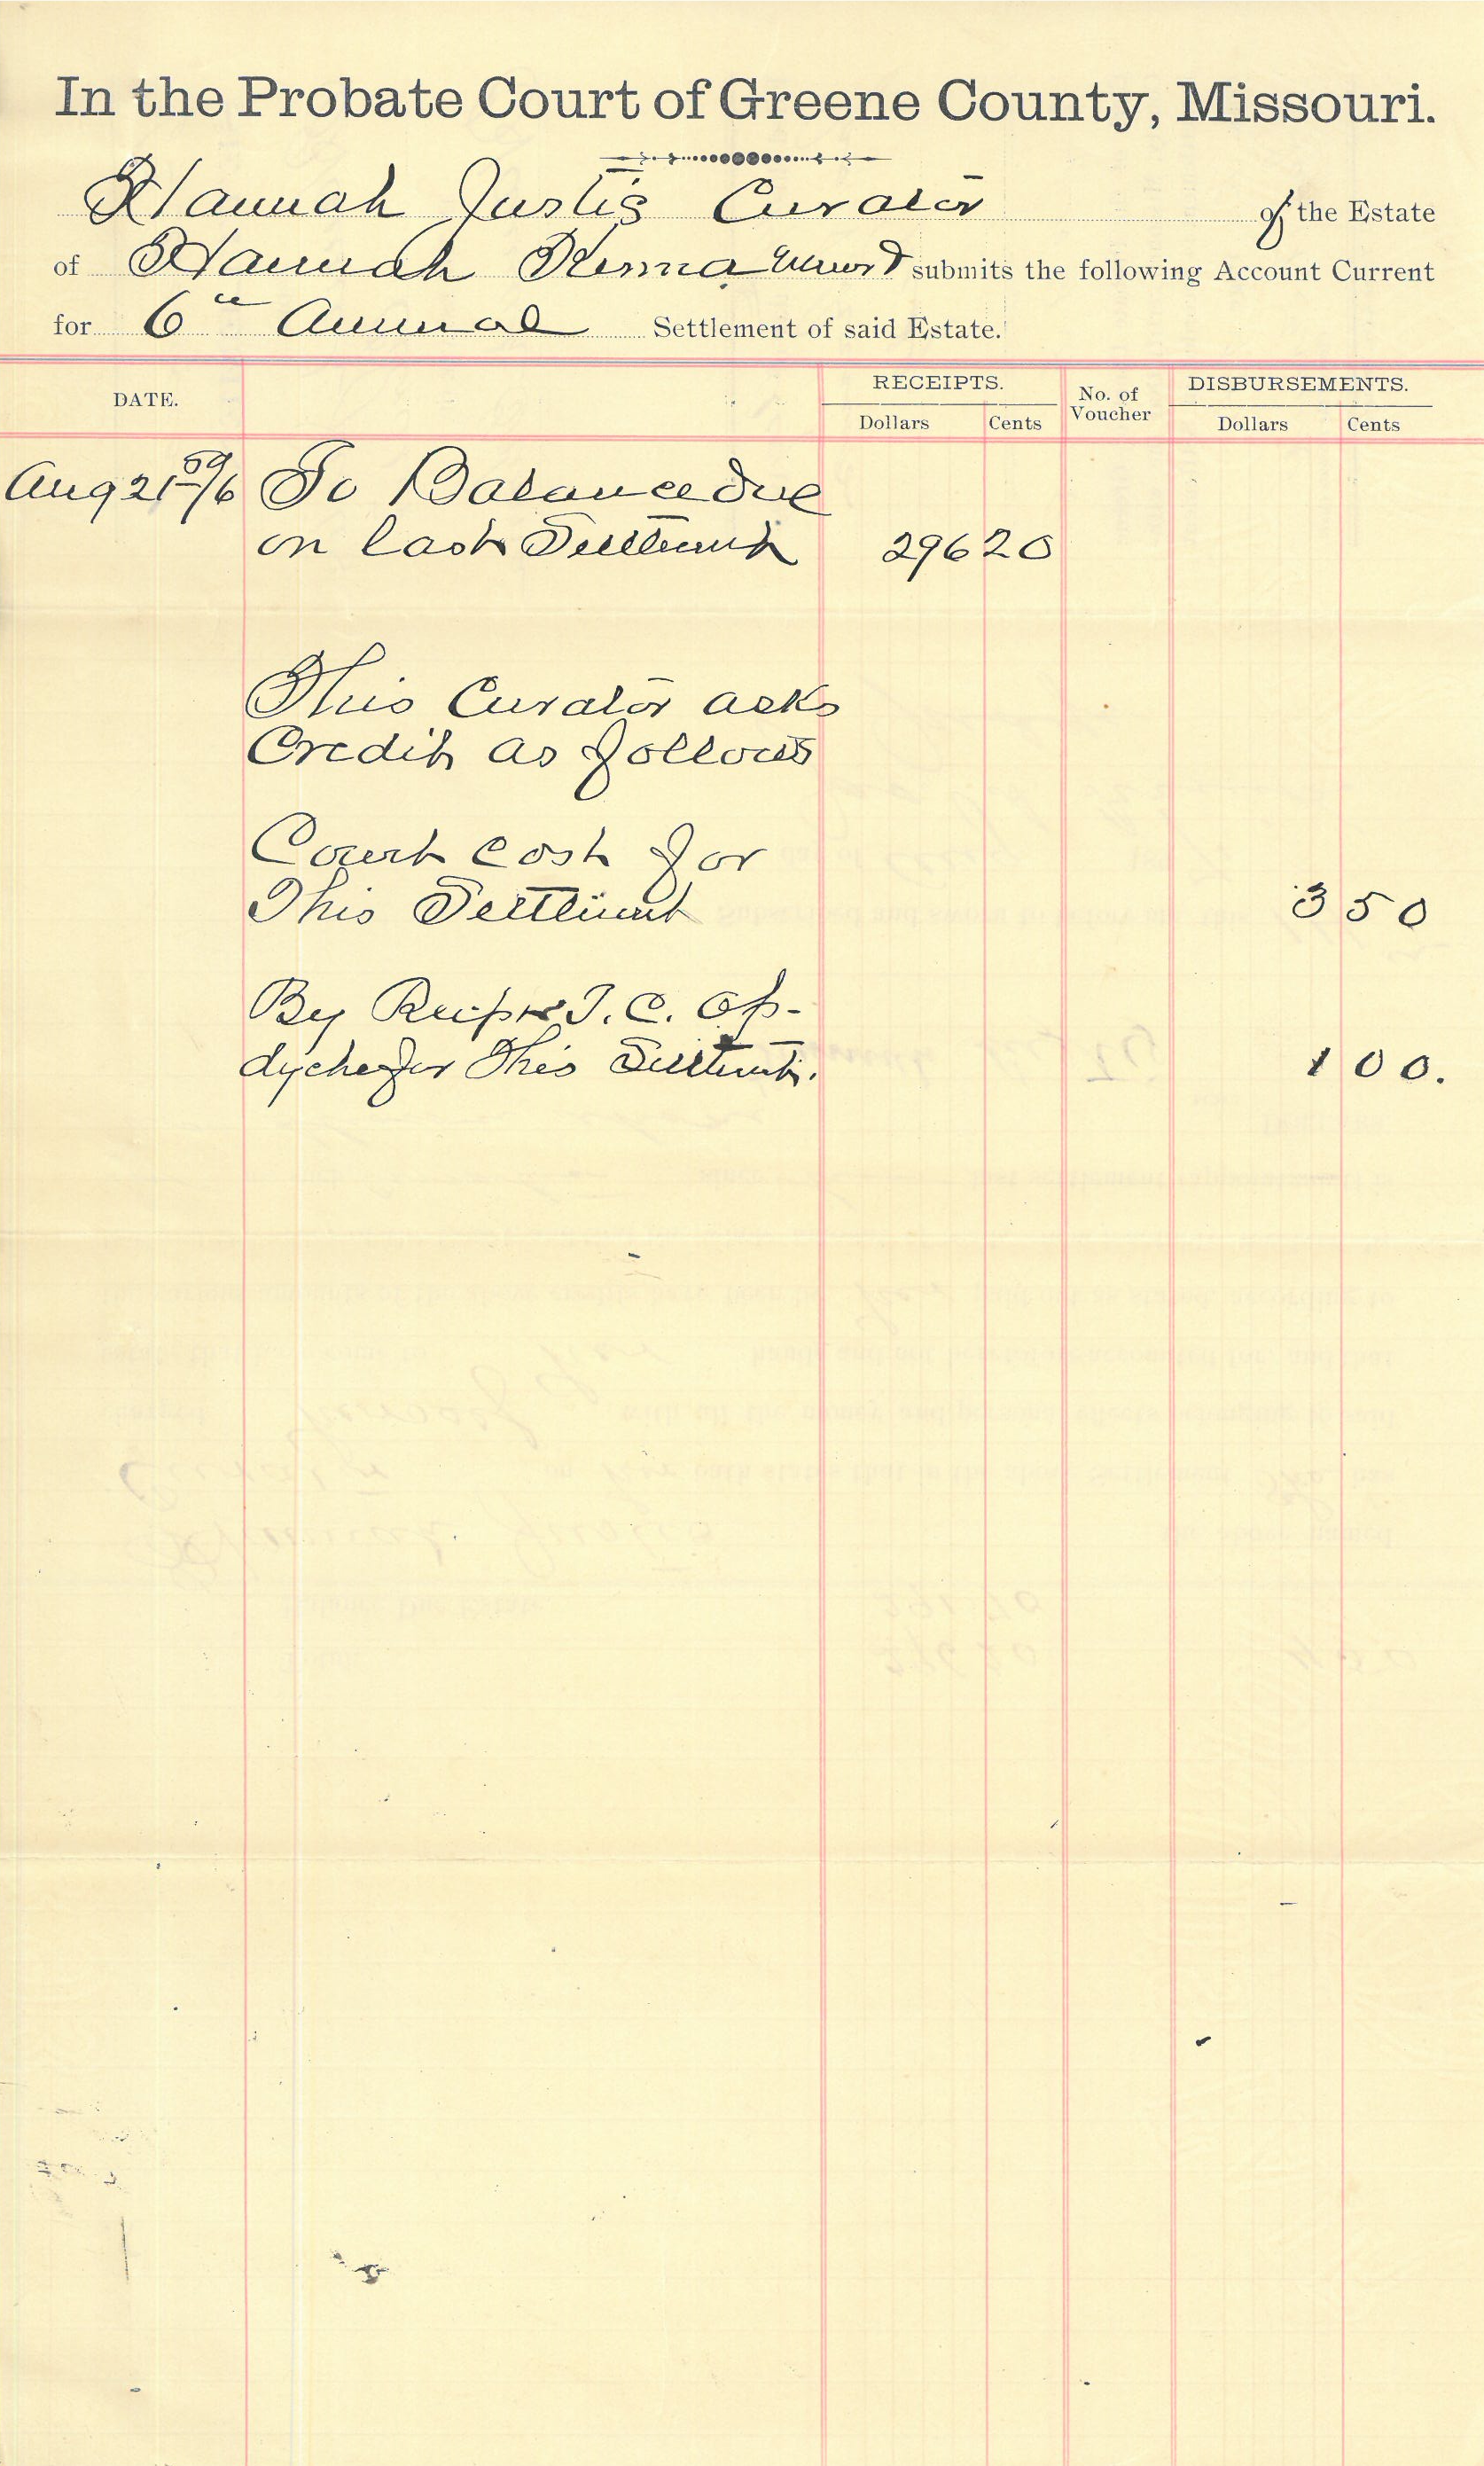 In the Probate Court of Greene County, Missouri.
Hannah Justis Curator of the Estate
of Hannah Kenna submits the following Account Current
for 6th Annual Settlement of said Estate.
DATE. RECEIPTS. No. of Voucher DISBURSEMENTS.
Dollars Cents Dollars Cents
Aug 21 To Balance due
on last Settlement 296 20
This Curator asks
Credit as follows
Court cost for
This Settlement 3 50
By T. C. Op-
dyche for This Settlement. 1 00.